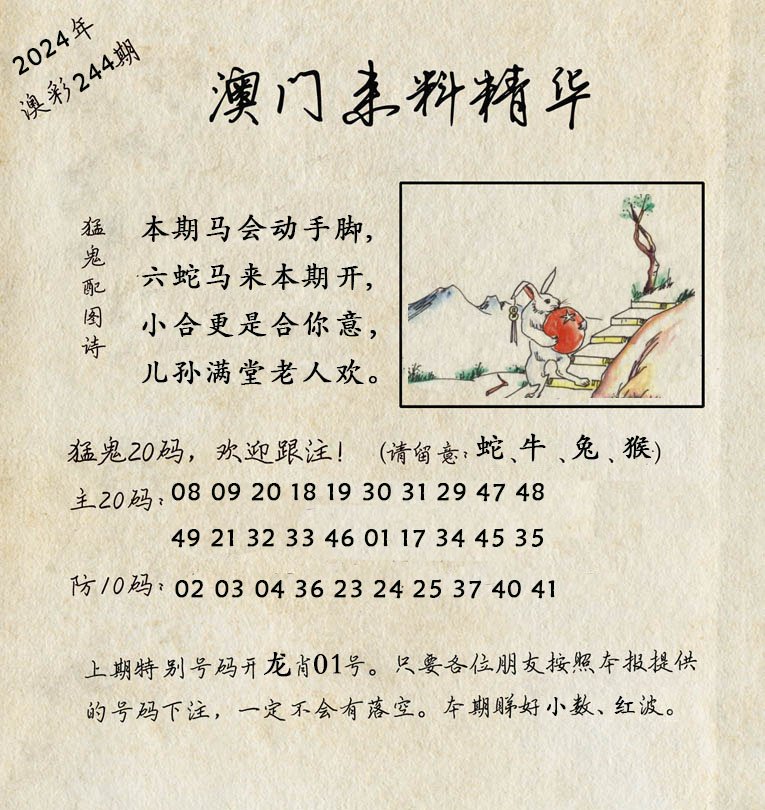 2024年
澳彩244期
澳门来料精华
猛鬼配图诗
本期马会动手脚,
六蛇马来本期开,
小合更是合你意,
儿孙满堂老人欢。
猛鬼20码，欢迎跟注！ (请留意:蛇、牛、兔、猴)
主20码: 08 09 20 18 19 30 31 29 47 48
49 21 32 33 46 01 17 34 45 35
防10码: 02 03 04 36 23 24 25 37 40 41
上期特别号码开龙肖01号。只要各位朋友按照本报提供
的号码下注，一定不会有落空。本期睇好小数、红波。